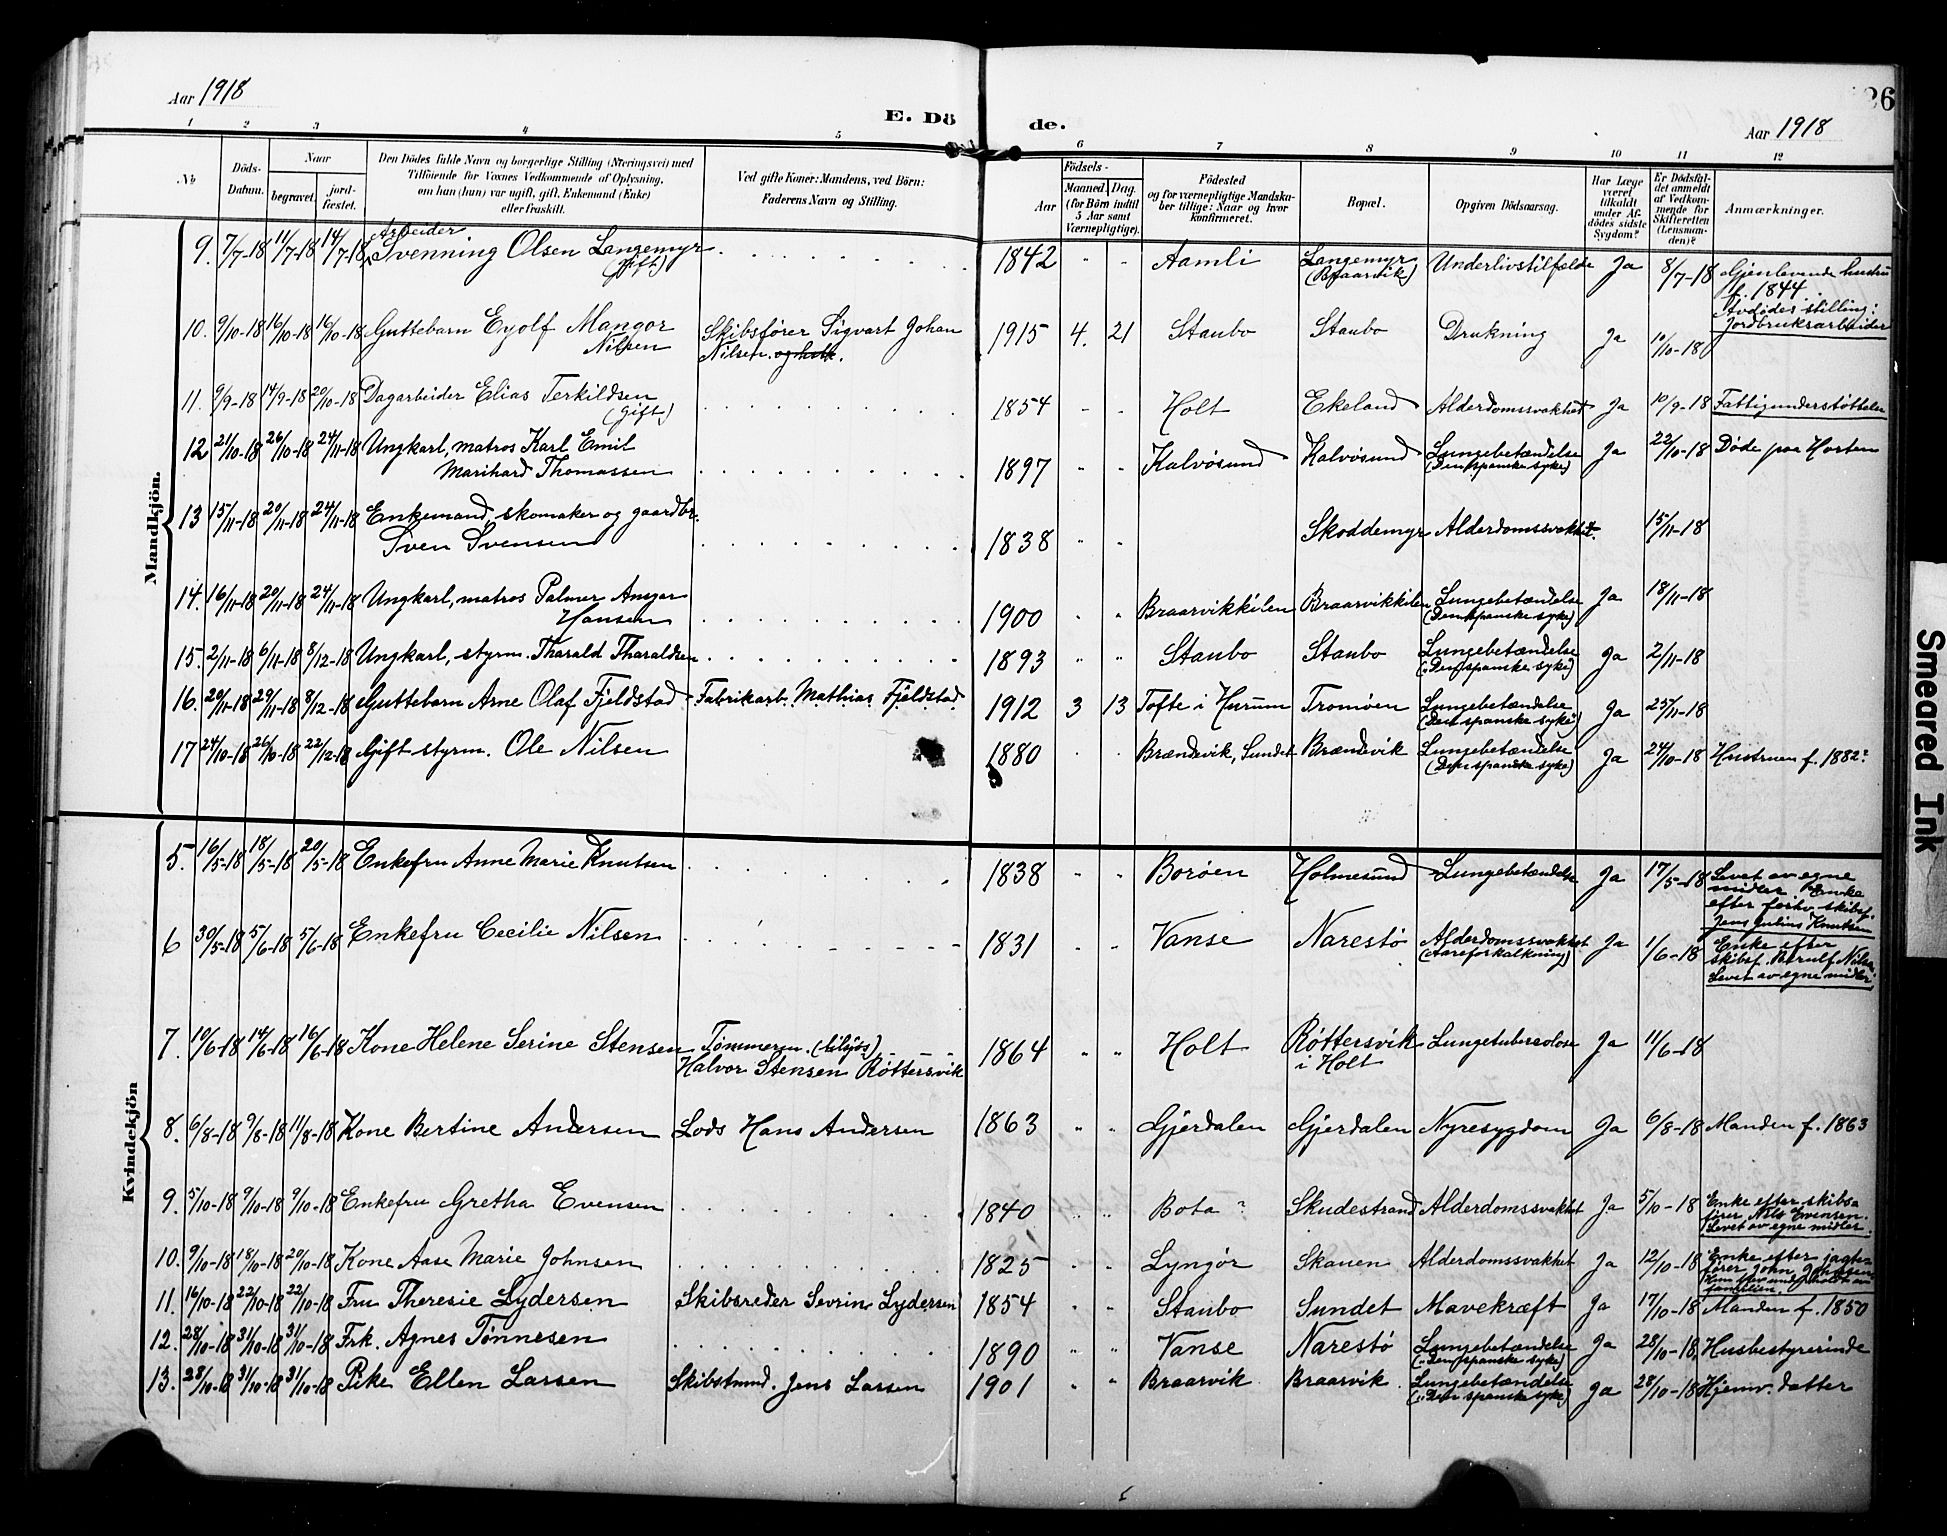 Aar 1918
E. Dö
de.
Aar 1918
26
1 2 3 4 5 6 7 8 9 10 11 12
No
Döds-
Datum.
Naar
begravet.
jord-
fæstet.
Den Dödes fulde Navn og borgerlige Stilling (Næringsvei) med
Tilföiende for Voxnes Vedkommende af Oplysning,
om han (hun) var ugift, gift, Enkemand (Enke)
eller fraskilt.
Ved gifte Koner: Mandens, ved Börn:
Faderens Navn og Stilling.
Födsels-
Aar
Maaned. Dag.
(for Börn indtil
5 Aar samt
Værnepligtige).
Födested
og for værnepligtige Mandska-
ber tillige: Naar og hvor
konfirmeret.
Bopæl.
Opgiven Dödsaarsag.
Har Læge
været
tilkaldt
under Af-
dödes sidste
Sygdom?
Er Dödsfal-
det anmeldt
af Vedkom-
mende for
Skifteretten
(Lensman-
den)?
Anmærkninger.
Mandkjön.
Arbeider
9. 7/7-18 11/7-18 14/7-18 Svenning Olsen Langemyr 1842 " " Aamli Langemyr Underlivstilfælde Ja 8/7-18 Gjenlevende hustru
(Gift) (Braarvik) f. 1844.
Avdødes stilling:
Jordbruksarbeider
10. 9/10-18 16/10-18 16/10-18 Guttebarn Eyolf Mangor Skibsfører Sigvart Johan 1915 4. 21 Staubo Staubo Drukning Ja 10/10-18
Nilsen Nilsen
11. 9/9-18 14/9-18 20/10-18 Dagarbeider Elias Terkildsen 1854 " " Holt Ekeland Alderdomssvakhet Ja 10/9-18 Fattigunderstøttelse
(Gift)
12 21/10-18 26/10-18 24/11-18 Ungkarl, matros Karl Emil 1897 " " Kalvøsund Kalvøsund Lungebetændelse Ja 22/10-18 Døde paa Horten
Marihard Thomassen (Den spanske syke)
13 15/11-18 20/11-18 24/11-18 Enkemand, skomaker og gaardbr.
Sven Svensen 1838 " " Skoddemyr Alderdomssvakhet. 15/11-18
14. 16/11-18 20/11-18 24/11-18 Ungkarl, matros Palmer Ansgar 1900 " " Braarvikkilen Braarvikkilen Lungebetændelse Ja 18/11-18
Hansen (Den spanske syke)
15. 2/11-18 6/11-18 8/12-18 Ungkarl, styrm. Tharald Tharaldsen 1893 " " Staubo Staubo Lungebetændelse Ja 2/11-18
("Den spanske syke)
16. 20/11-18 29/11-18 8/12-18 Guttebarn Arne Olaf Fjeldstad Fabrikarb. Mathias Fjeldstad 1912 3 13 Tofte i Hurum Tromøen Lungebetændelse Ja 25/11-18
(Den spanske syke)
17 24/10-18 26/10-18 22/12-18 Gift styrm. Ole Nilsen 1880 " " Brændsvik, Sundet Brændsvik Lungebetændelse Ja 24/10-18 Hustruen f. 1882?
(Den spanske syke)
Kvindekjön
5. 16/5-18 18/5-18 20/5-18 Enkefru Anne Marie Knutsen 1838 " " Borøen Holmesund Lungebetændelse Ja 17/5-18 Levet av egne
midler. Enke
efter forhv. skibsf.
Jens Julius Knutsen
6 30/5-18 5/6-18 5/6-18 Enkefru Cecilie Nilsen 1831 " " Vanse Narestø Alderdomssvakhet Ja 1/6-18 Enke efter
(Aareforkalkning) skibsf. Berulf Nilsen.
Levet av egne midler
7. 10/6-18 14/6-18 16/6-18 Kone Helene Serine Stensen Tømmerm. (tilsjøs) 1864 " " Holt Røttersvik Lungetuberculose Ja 11/6-18
Halvor Stensen Røttersvik i Holt
8. 6/8-18 9/8-18 11/8-18 Kone Bertine Andersen Lods Hans Andersen 1863 " " Gjerdalen Gjerdalen Nyresygdom Ja 6/8-18 Manden f. 1863
9. 5/10-18 9/10-18 9/10-18 Enkefru Gretha Evensen 1840 " " Bota ? Skudestrand Alderdomssvakhet Ja 5/10-18 Enke efter skibs-
fører Nils Evensen.
Levet av egne midler.
10. 9/10-18 18/10-18 20/10-18 Kone Aase Marie Johnsen 1825 Lyngør Skauen Alderdomssvakhet Ja 12/10-18 Enke efter jagte-
fører John Johnsen
familien.
11. 16/10-18 22/10-18 22/10-18 Fru Theresie Lydersen Skibsreder Sevrin Lydersen 1854 " " Staubo Sundet Mavekræft Ja 17/10-18 Manden f. 1850
12. 28/10-18 31/10-18 31/10-18 Frk. Agnes Tønnesen 1890 " " Vanse Narestø Lungebetændelse Ja 28/10-18, Husbestyrerinde
("Den spanske syke)
13. 28/10-18 31/10-18 31/10-18 Pike Ellen Larsen Skibstmnd. Jens Larsen 1901 " " Braarvik Braarvik Lungebetændelse Ja 28/10-18 Hjemv. datter
("Den spanske syke)
Smeared Ink